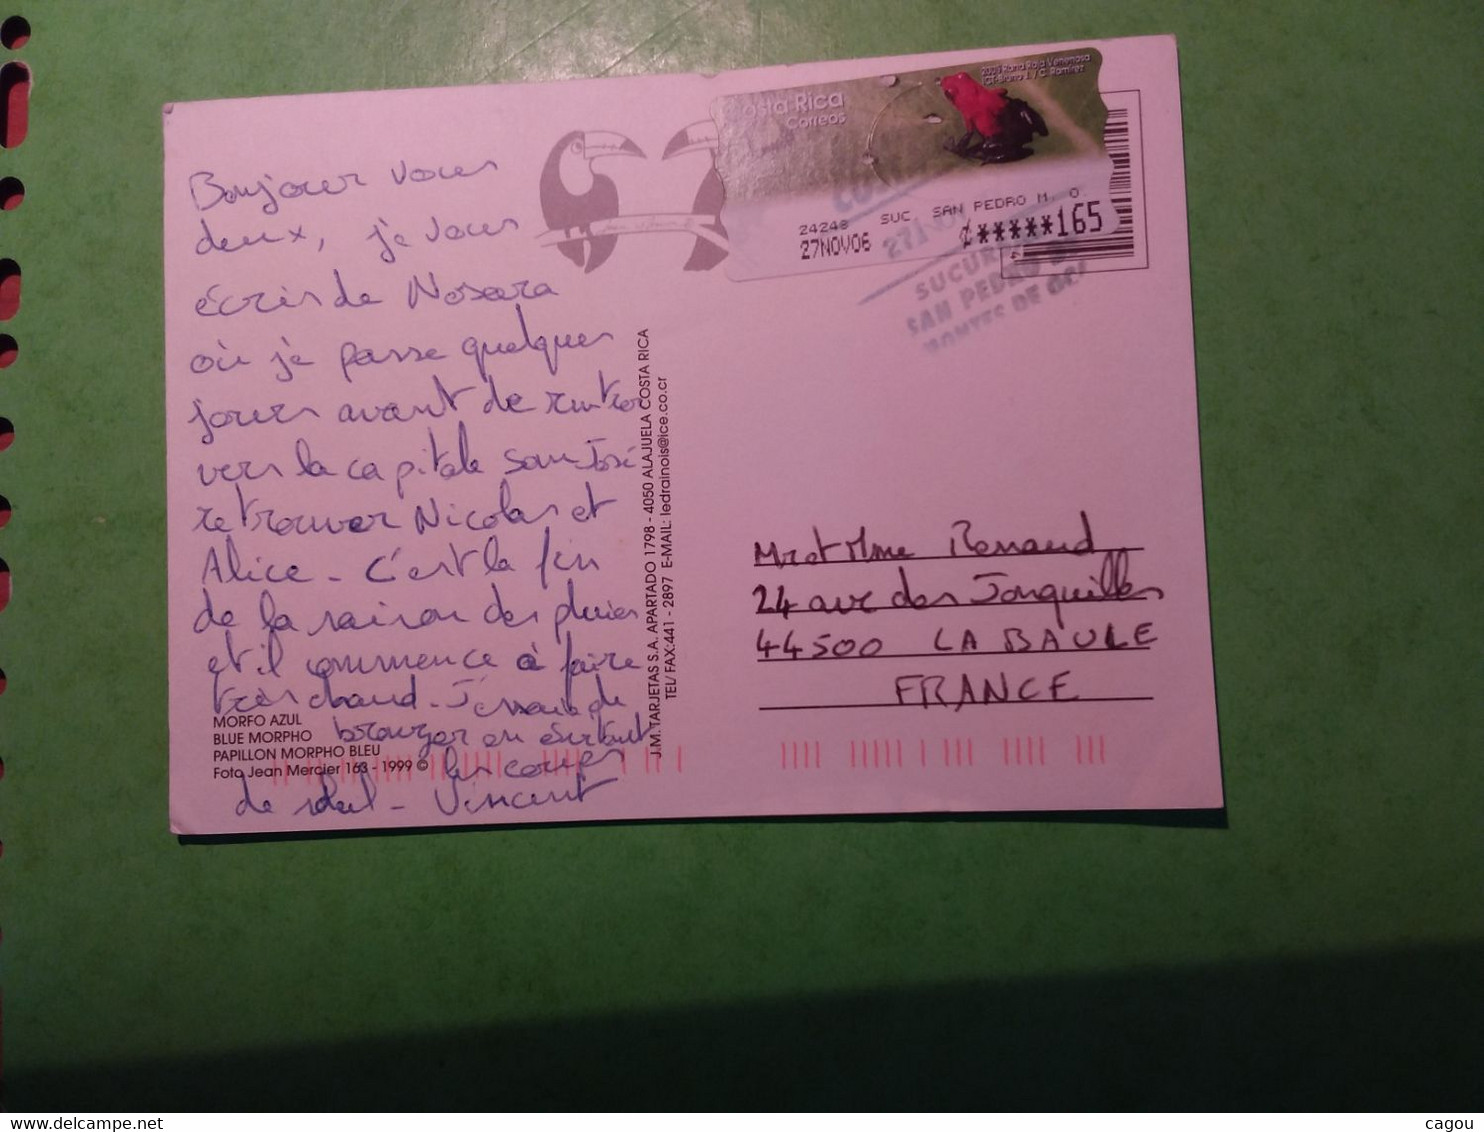 Bonjour vous
deux, je vous
écris de Nosara
où je passe quelques
jours avant de rentrer
vers la capitale San José
retrouver Nicolas et
Alice - C'est la fin
de la saison des pluies
et il commence à faire
très chaud. J'essaie de
bronzer en évitant
les coups
de soleil - Vincent
MORFO AZUL
BLUE MORPHO
PAPILLON MORPHO BLEU
Foto Jean Mercier 163 - 1999 ©
J.M. TARJETAS S.A. APARTADO 1798 - 4050 ALAJUELA COSTA RICA
TEL/ FAX:441 - 2897 E-MAIL: ledrainois@ice.co.cr
Costa Rica
Correos
2005 Rana Roja Venenosa
C. Ramírez
24248 SUC SAN PEDRO M. O
27NOV06 ¢*****165
SUCURSAL
SAN PEDRO DE
MONTES DE OCA
Mr et Mme Renaud
24 ave des Jonquilles
44500 LA BAULE
FRANCE
cagou